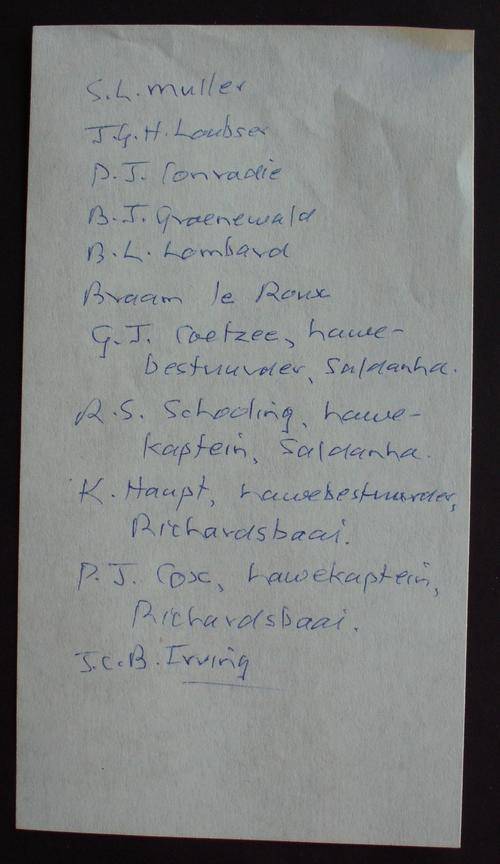 S.L. Muller
J.G.H. Loubser
D.J. Conradie
B.J. Groenewald
B.L. Lombard
Braam le Roux
G.J. Coetzee, hawe-
bestuurder, Saldanha.
R.S. Schooling, hawe-
kaptein, Saldanha.
K. Haupt, hawebestuurder,
Richardsbaai.
P.J. Cox, hawekaptein,
Richardsbaai.
J.C.B. Irving